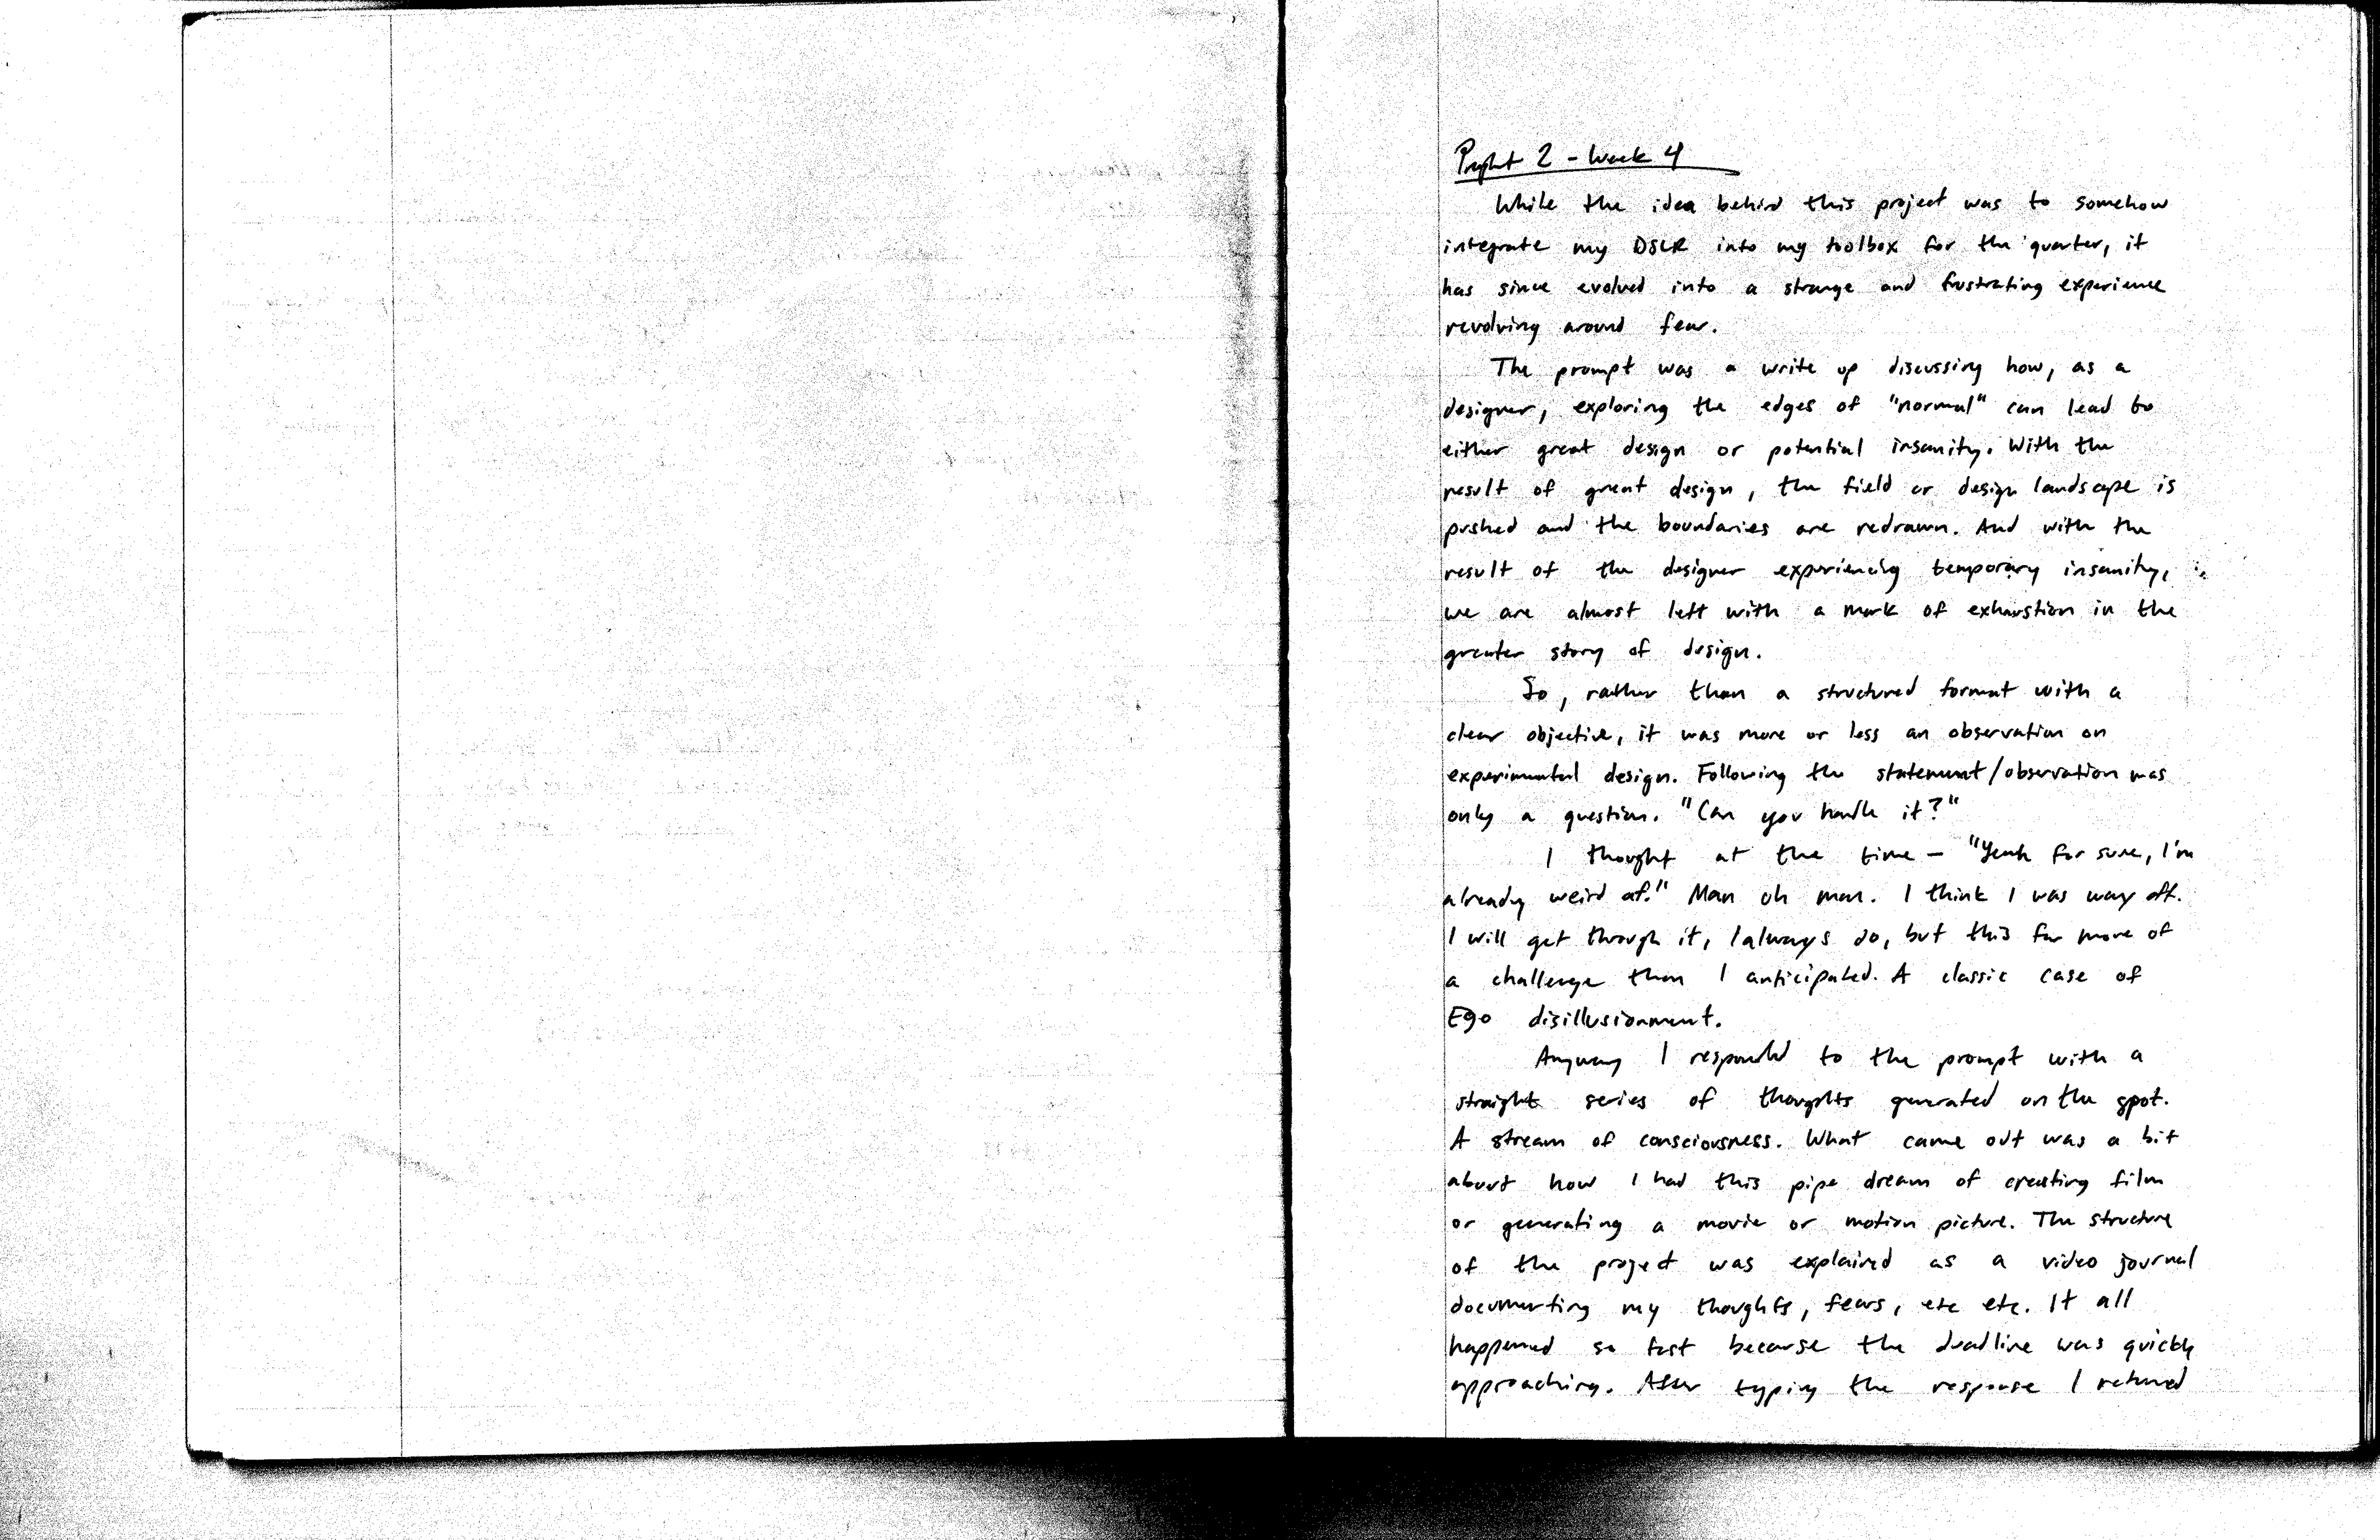 Project 2 - Week 4
While the idea behind this project was to somehow
integrate my DSLR into my toolbox for the quarter, it
has since evolved into a strange and frustrating experience
revolving around fear.
The prompt was a write up discussing how, as a
designer, exploring the edges of "normal" can lead to
either great design or potential insanity. With the
result of great design, the field or design landscape is
pushed and the boundaries are redrawn. And with the
result of the designer experiencing temporary insanity,
we are almost left with a mark of exhaustion in the
greater story of design.
So, rather than a structured format with a
clear objective, it was more or less an observation on
experimental design. Following the statement/observation was
only a question. "Can you handle it?"
I thought at the time - "Yeah for sure, I'm
already weird af." Man oh man. I think I was way off.
I will get through it, I always do, but this far more of
a challenge than I anticipated. A classic case of
Ego disillusionment.
Anyway I responded to the prompt with a
straight series of thoughts generated on the spot.
A stream of consciousness. What came out was a bit
about how I had this pipe dream of creating film
or generating a movie or motion picture. The structure
of the project was explained as a video journal
documenting my thoughts, fears, etc etc. It all
happened so fast because the deadline was quickly
approaching. After typing the response I returned